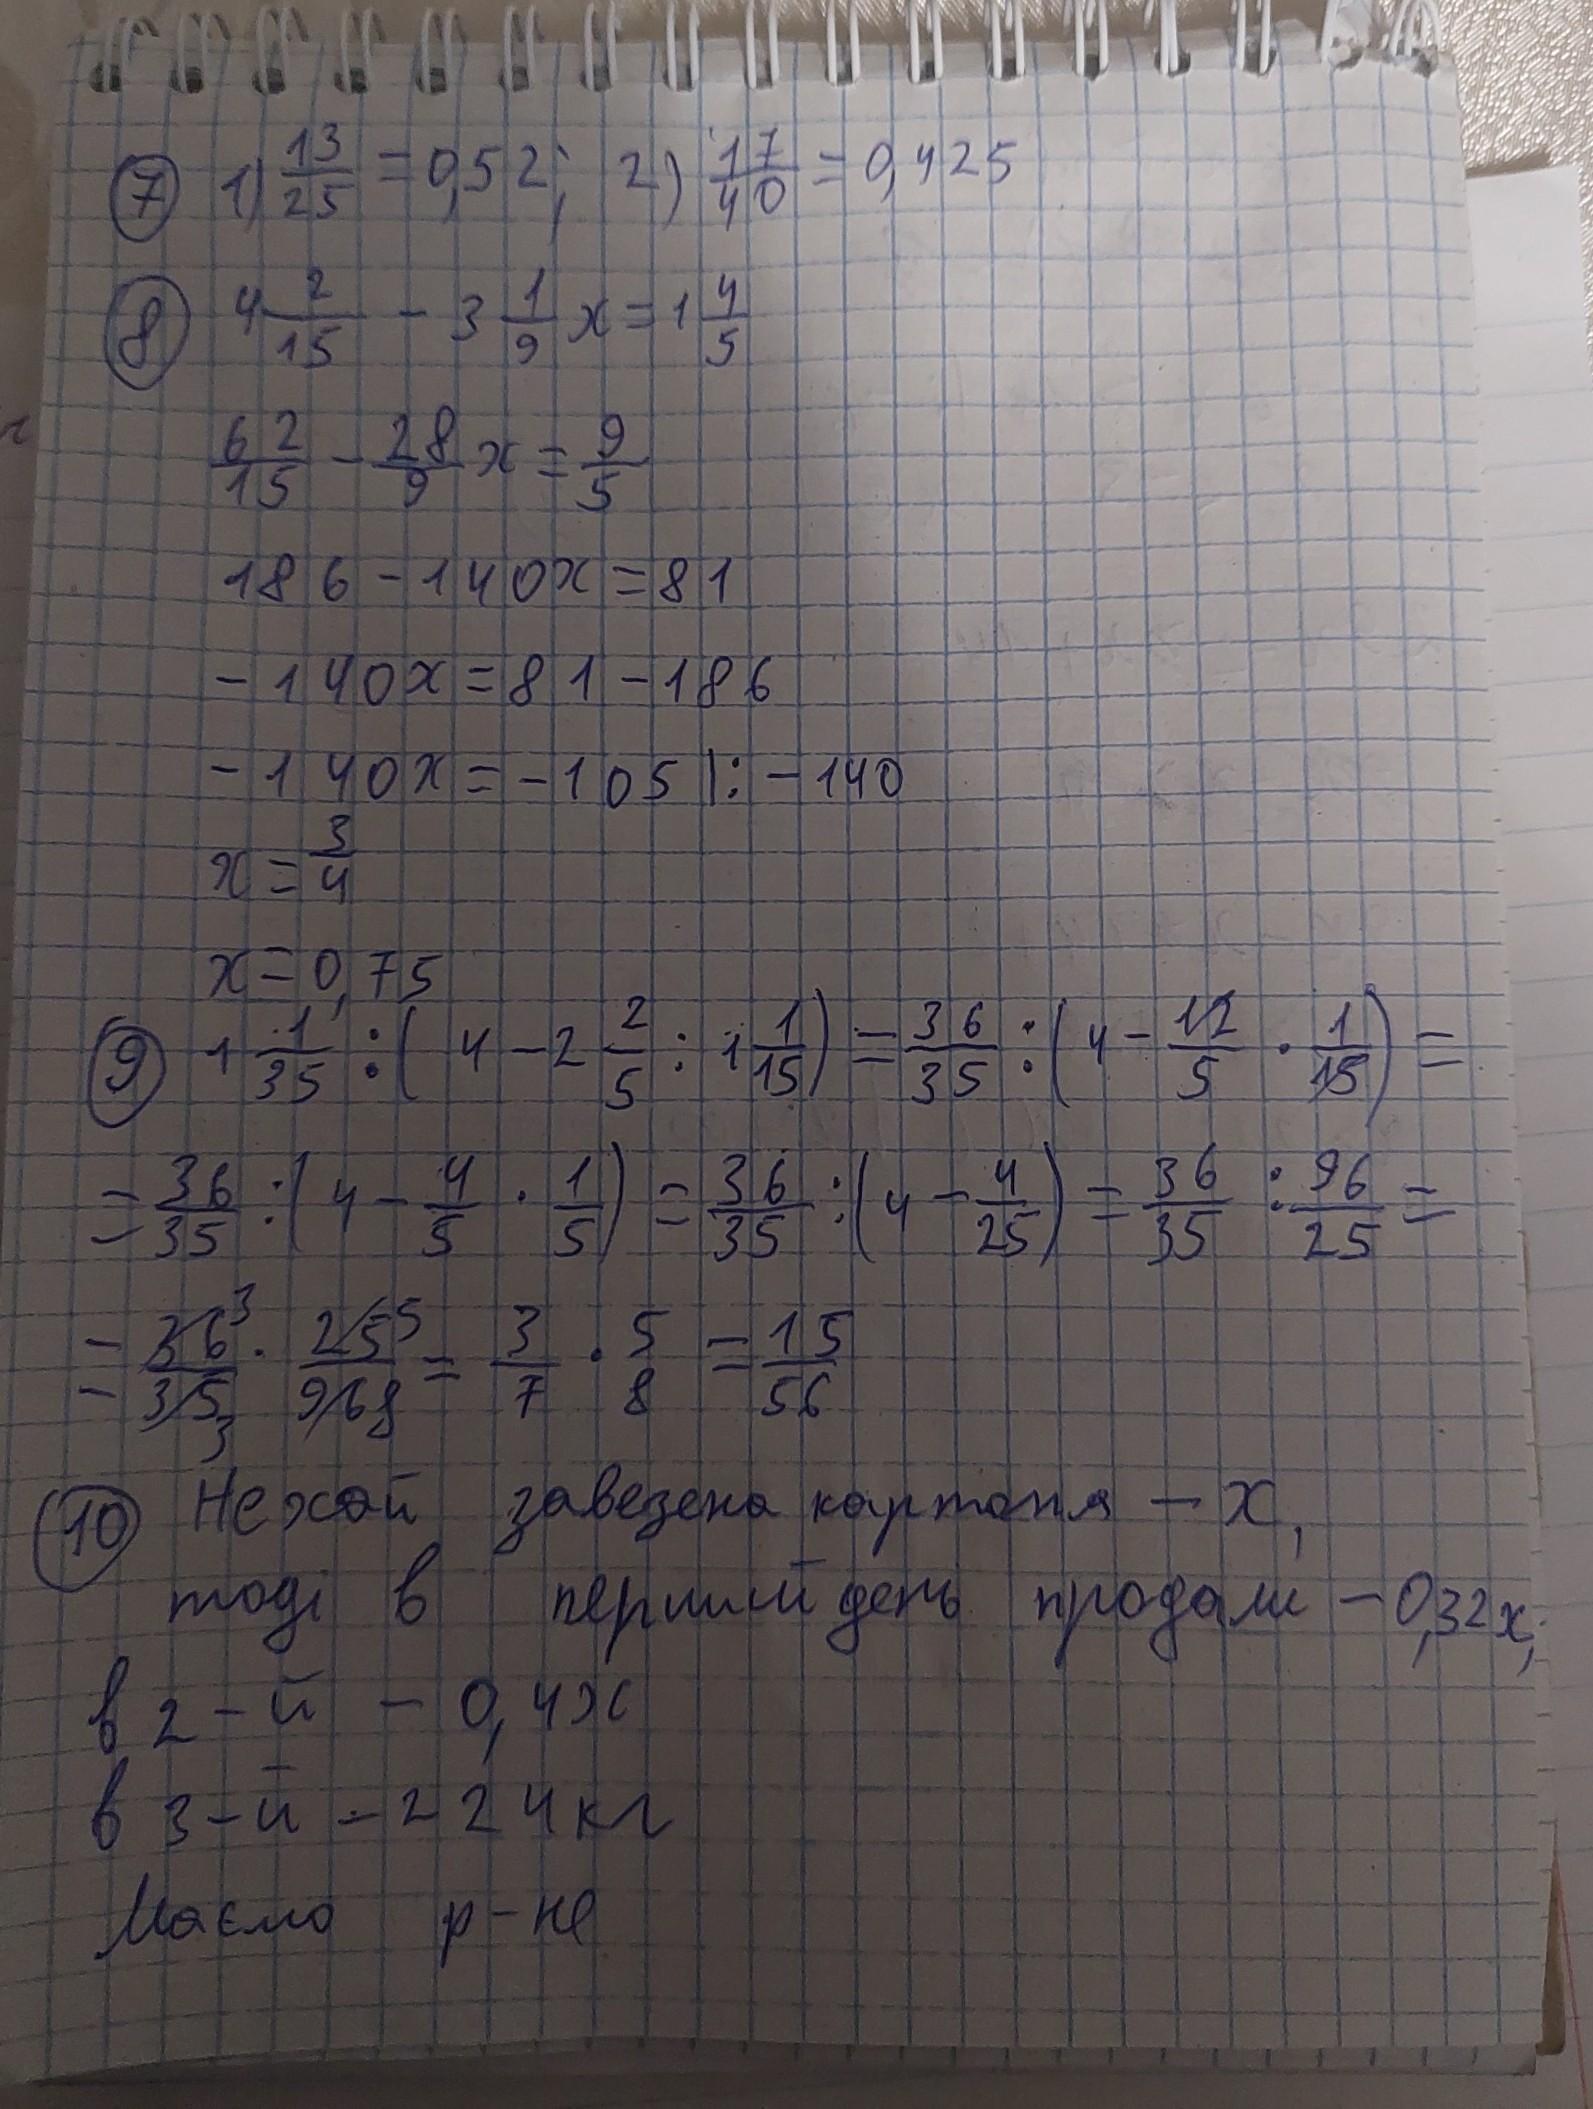 7 1) 13/25 = 0,52; 2) 17/40 = 0,425
8 4 2/15 - 3 1/9 x = 1 4/5
62/15 - 28/9 x = 9/5
186 - 140x = 81
- 140x = 81 - 186
- 140x = - 105 |: - 140
x = 3/4
x = 0,75
9 1 1/35 : ( 4 - 2 2/5 : 1 1/15 ) = 36/35 : ( 4 - 12/5 · 1/15 ) =
= 36/35 : ( 4 - 4/5 · 1/5 ) = 36/35 : ( 4 - 4/25 ) = 36/35 : 96/25 =
= 36 3/35 3 · 25 5/96 8 = 3/7 · 5/8 = 15/56
10 Нехай завезена картопля - x,
тоді в перший день продали - 0,32x;
в 2-й - 0,4x
в 3-й - 224 кг
Маємо р-не